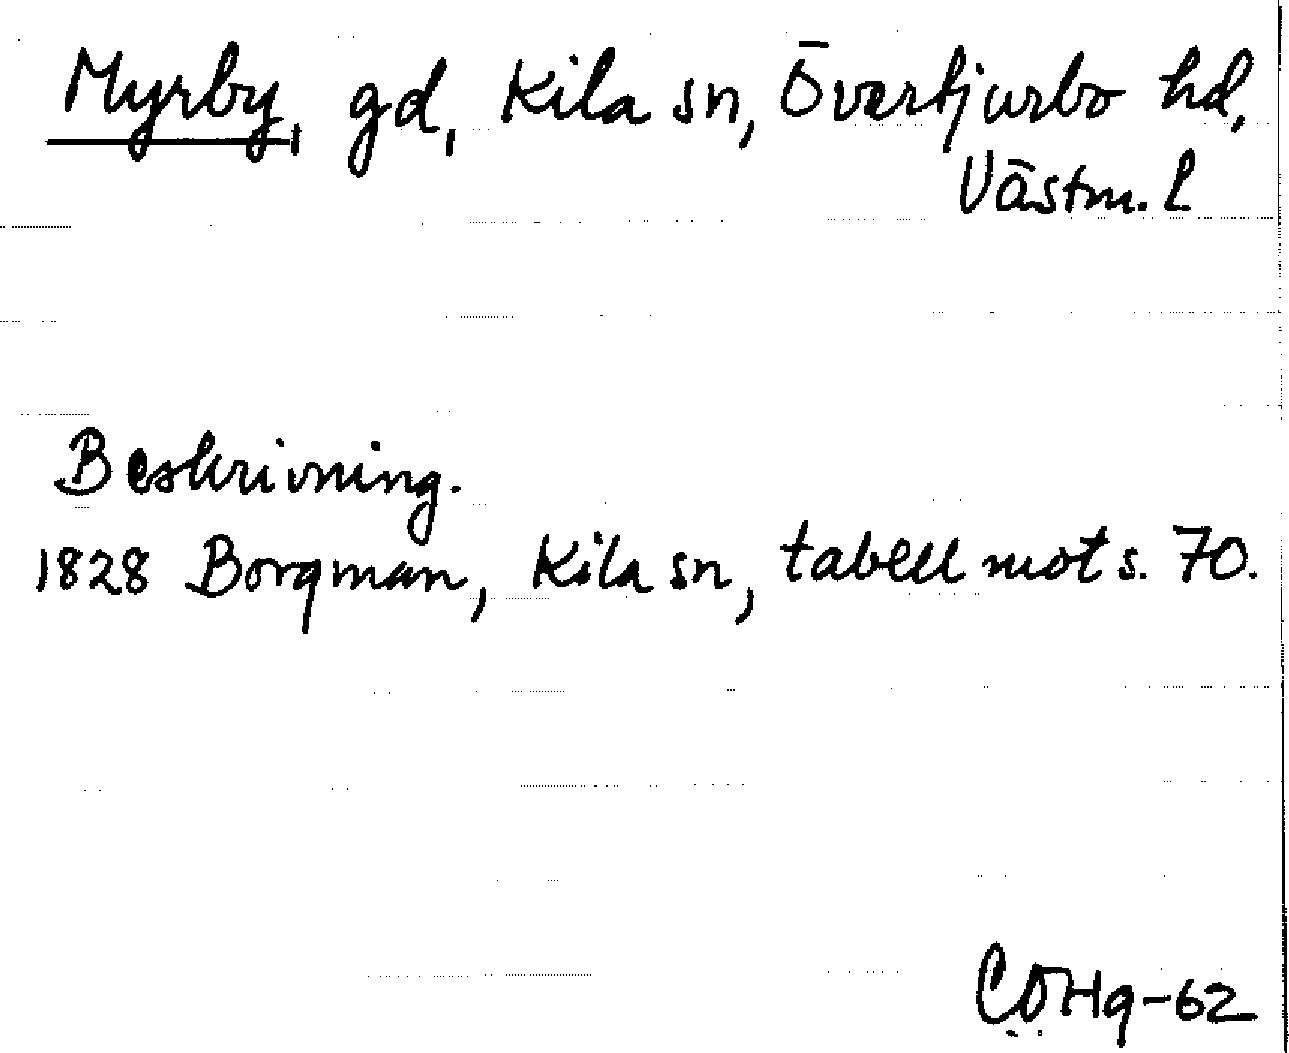 Myrby, gd, Kila sn, Övertjurbo hd,
Västm. l
Beskrivning.
1828 Borgman, Kila sn, tabell mot s. 70.
CÖHg-62